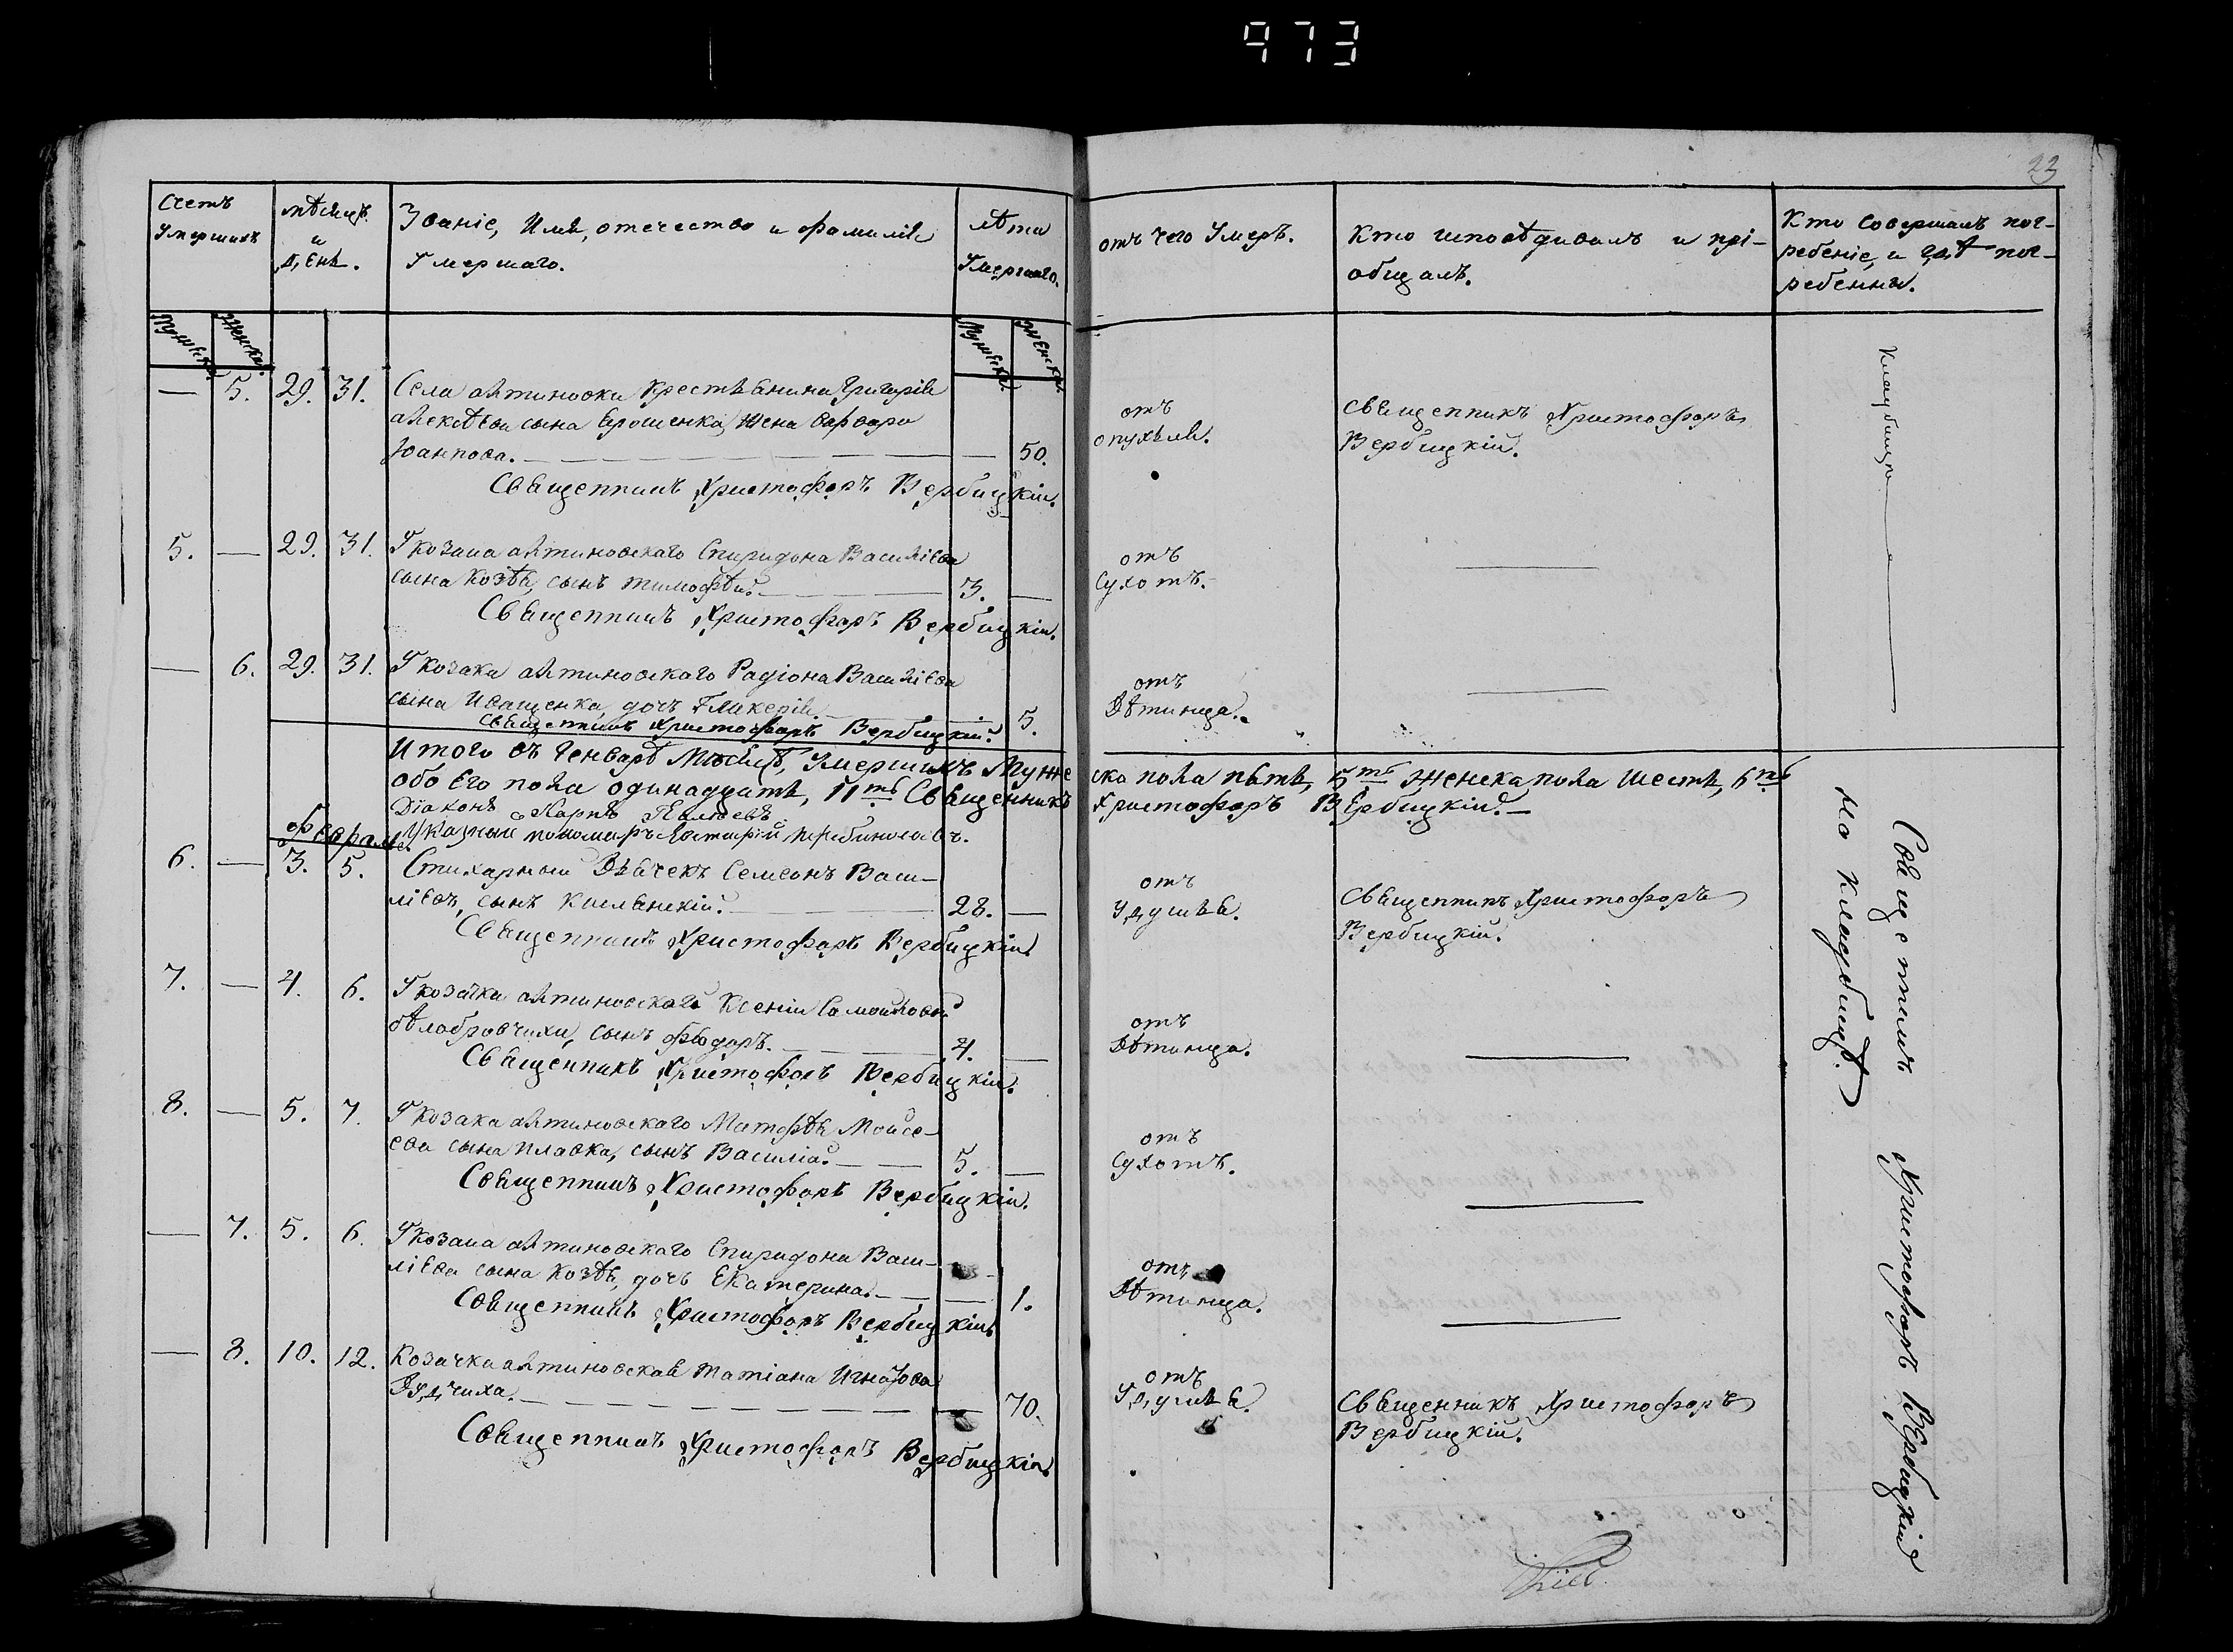 973
23
Счетъ
Умершихъ
мѣсяцъ
и
день.
Званіе, Имя, отечество и фамилія
Умершаго.
лѣта
Умершаго.
отъ чего Умеръ.
Кто исповѣдивалъ и прі-
общалъ.
Кто совершалъ пог-
ребеніе, и гдѣ пог-
ребенны.
Мужеска. Женска.
Мужеска. Женска.
— 5. 29. 31. Села алтиновки крестьянина Григорія
алексѣева сына Ерошенка, жена варвара
Іоаннова. — 50.
отъ
опухали.
священникъ Христофоръ
Вербицкій.
Священникъ Христофоръ Вербицкій.
5. — 29. 31. У козака алтиновскаго Спиридона Василіева
сына Козѣя, сынъ тимофѣй. 3. —
отъ
Сухотъ.
Священникъ Христофоръ Вербицкій.
— 6. 29. 31. У козака алтиновскаго Радіона Василіева
сына Иващенка, дочь Гликерія. 5.
отъ
Дѣтинца.
Священникъ Христофоръ Вербицкій.
Итого въ Генварѣ Мѣсяцѣ, Умершихъ Муже
ска пола пять, 5ть Женска пола шесть, 6ть
обо Его пола одинадцять, 11ть Священникъ
Христофоръ Вербицкій.
Діаконъ Карпъ
Указный пономаръ
Февраля.
6. — 3. 5. Стихарный Дьячекъ Семеонъ Васи-
ліевъ, сынъ 28. —
отъ
Удушья.
Священникъ Христофоръ
Вербицкій.
Священникъ Христофоръ Вербицкій
7. — 4. 6. У козачки алтиновскаго Ксеніи Самойловой
бѣлобровчихи, сынъ Фѣодоръ. 4. —
отъ
Дѣтинца.
Священникъ Христофоръ Вербицкій.
8. — 5. 7. У козака алтиновскаго Матфѣя Мойсе-
ева сына плавка, сынъ Василій. 5. —
отъ
Сухотъ.
Священникъ Христофоръ Вербицкій.
— 7. 5. 6. У козака алтиновскаго Спиридона Васи-
ліева сына Козѣя, дочь Екатерина. — 1.
отъ
Дѣтинца.
Священникъ Христофоръ Вербицкій
— 8. 10. 12. Козачка алтиновская татіана Игнатова
— 70.
отъ
Удушья.
Священникъ Христофоръ
Вербицкій.
Священникъ Христофоръ Вербицкій
Священникъ Христофоръ Вербицкій
на кладбищѣ.